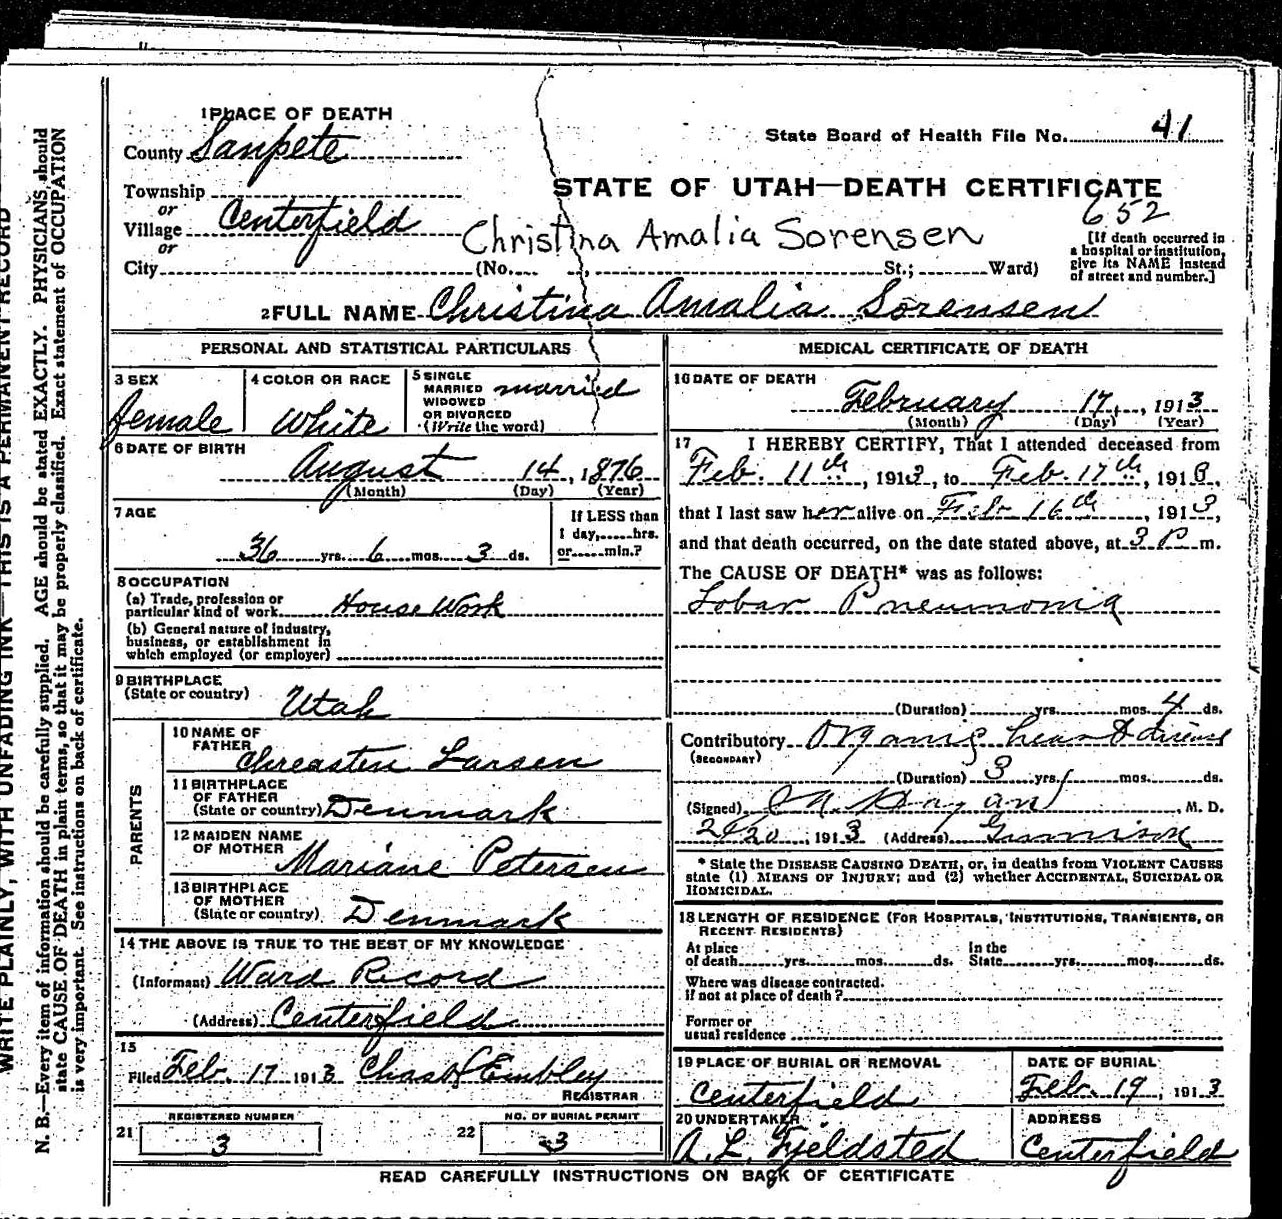 1 PLACE OF DEATH
County Sanpete
State Board of Health File No. 41
Township
or
Village Centerfield
or
STATE OF UTAH—DEATH CERTIFICATE
652
Christina Amalia Sorensen
City (No. , St.; Ward)
[If death occurred in
a hospital or institution,
give its NAME instead
of street and number.]
2 FULL NAME Christina Amalia Sorensen
PERSONAL AND STATISTICAL PARTICULARS
3 SEX
female
4 COLOR OR RACE
White
5 SINGLE
MARRIED
WIDOWED
OR DIVORCED
(Write the word)
married
6 DATE OF BIRTH
August 14, 1876
(Month) (Day) (Year)
7 AGE
36 yrs. 6 mos. 3 ds.
If LESS than
1 day, hrs.
or min.?
8 OCCUPATION
(a) Trade, profession or
particular kind of work House Work
(b) General nature of industry,
business, or establishment in
which employed (or employer)
9 BIRTHPLACE
(State or country) Utah
PARENTS
10 NAME OF
FATHER Chreasten Larsen
11 BIRTHPLACE
OF FATHER
(State or country) Denmark
12 MAIDEN NAME
OF MOTHER Mariane Petersen
13 BIRTHPLACE
OF MOTHER
(State or country) Denmark
14 THE ABOVE IS TRUE TO THE BEST OF MY KNOWLEDGE
(Informant) Ward Record
(Address) Centerfield
15
Filed Feb. 17 1913 Chas Embley
REGISTRAR
REGISTERED NUMBER
21 3
NO. OF BURIAL PERMIT
22 3
MEDICAL CERTIFICATE OF DEATH
16 DATE OF DEATH
February 17, 1913
(Month) (Day) (Year)
17 I HEREBY CERTIFY, That I attended deceased from
Feb. 11th, 1913, to Feb. 17th, 1913,
that I last saw her alive on Feb 16th, 1913,
and that death occurred, on the date stated above, at 3 P m.
The CAUSE OF DEATH* was as follows:
Lobar Pneumonia
(Duration) yrs. mos. 4 ds.
Contributory Organic heart disease
(SECONDARY)
(Duration) 3 yrs. mos. ds.
(Signed) , M. D.
2/20, 1913 (Address) Gunnison
* State the DISEASE CAUSING DEATH, or, in deaths from VIOLENT CAUSES
state (1) MEANS OF INJURY; and (2) whether ACCIDENTAL, SUICIDAL OR
HOMICIDAL.
18 LENGTH OF RESIDENCE (FOR HOSPITALS, INSTITUTIONS, TRANSIENTS, OR
RECENT RESIDENTS)
At place
of death yrs. mos. ds.
In the
State yrs. mos. ds.
Where was disease contracted.
if not at place of death?
Former or
usual residence
19 PLACE OF BURIAL OR REMOVAL
Centerfield
DATE OF BURIAL
Feb. 19, 1913
20 UNDERTAKER
A. L. Fjeldsted
ADDRESS
Centerfield
READ CAREFULLY INSTRUCTIONS ON BACK OF CERTIFICATE
WRITE PLAINLY, WITH UNFADING INK—THIS IS A PERMANENT RECORD
N. B.—Every item of information should be carefully supplied. AGE should be stated EXACTLY. PHYSICIANS should
state CAUSE OF DEATH in plain terms, so that it may be properly classified. Exact statement of OCCUPATION
is very important. See instructions on back of certificate.